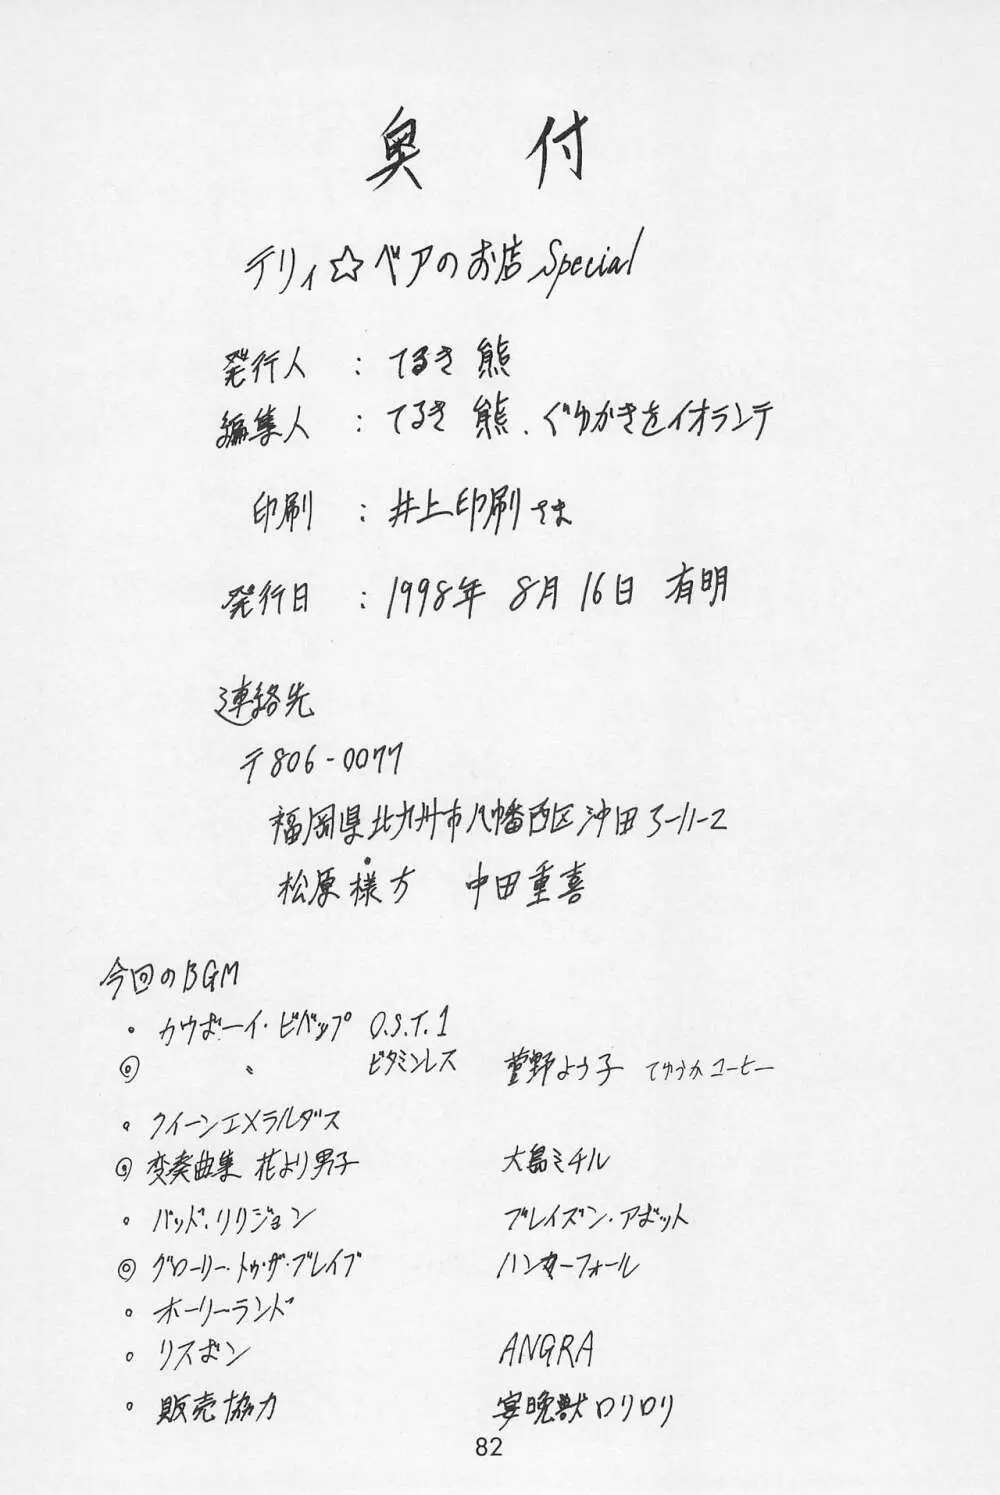 奥付
テリィ☆ベアのお店 Special
発行人 : てるき熊
編集人 : てるき熊、ぐゆかきをイオランテ
印刷 : 井上印刷さま
発行日 : 1998年 8月16日 有明
連絡先
〒806-0077
福岡県北九州市八幡西区沖田3-11-2
松原様方 中田重喜
今回のBGM
・カウボーイ・ビバップ O.S.T.1
◎ 〃 ビタミンレス 菅野よう子
・クイーンエメラルダス
◎ 変奏曲集 花より男子 大島ミチル
・バッド・リリジョン ブレイズン・アボット
◎ グローリー・トゥ・ザ・ブレイブ ハンマーフォール
・ホーリーランド
・リスボン ANGRA
・販売協力 宴晩獣ロリロリ
82